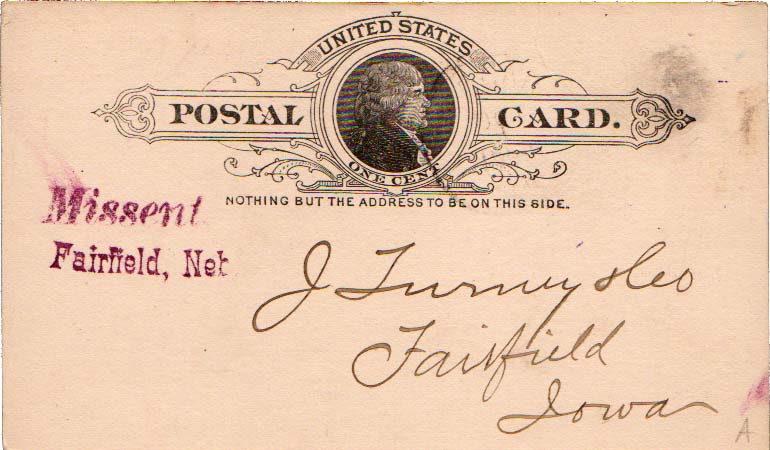 UNITED STATES
POSTAL CARD.
ONE CENT
NOTHING BUT THE ADDRESS TO BE ON THIS SIDE.
Missent
Fairfield, Neb
J Turney & Co
Fairfield
Iowa
A